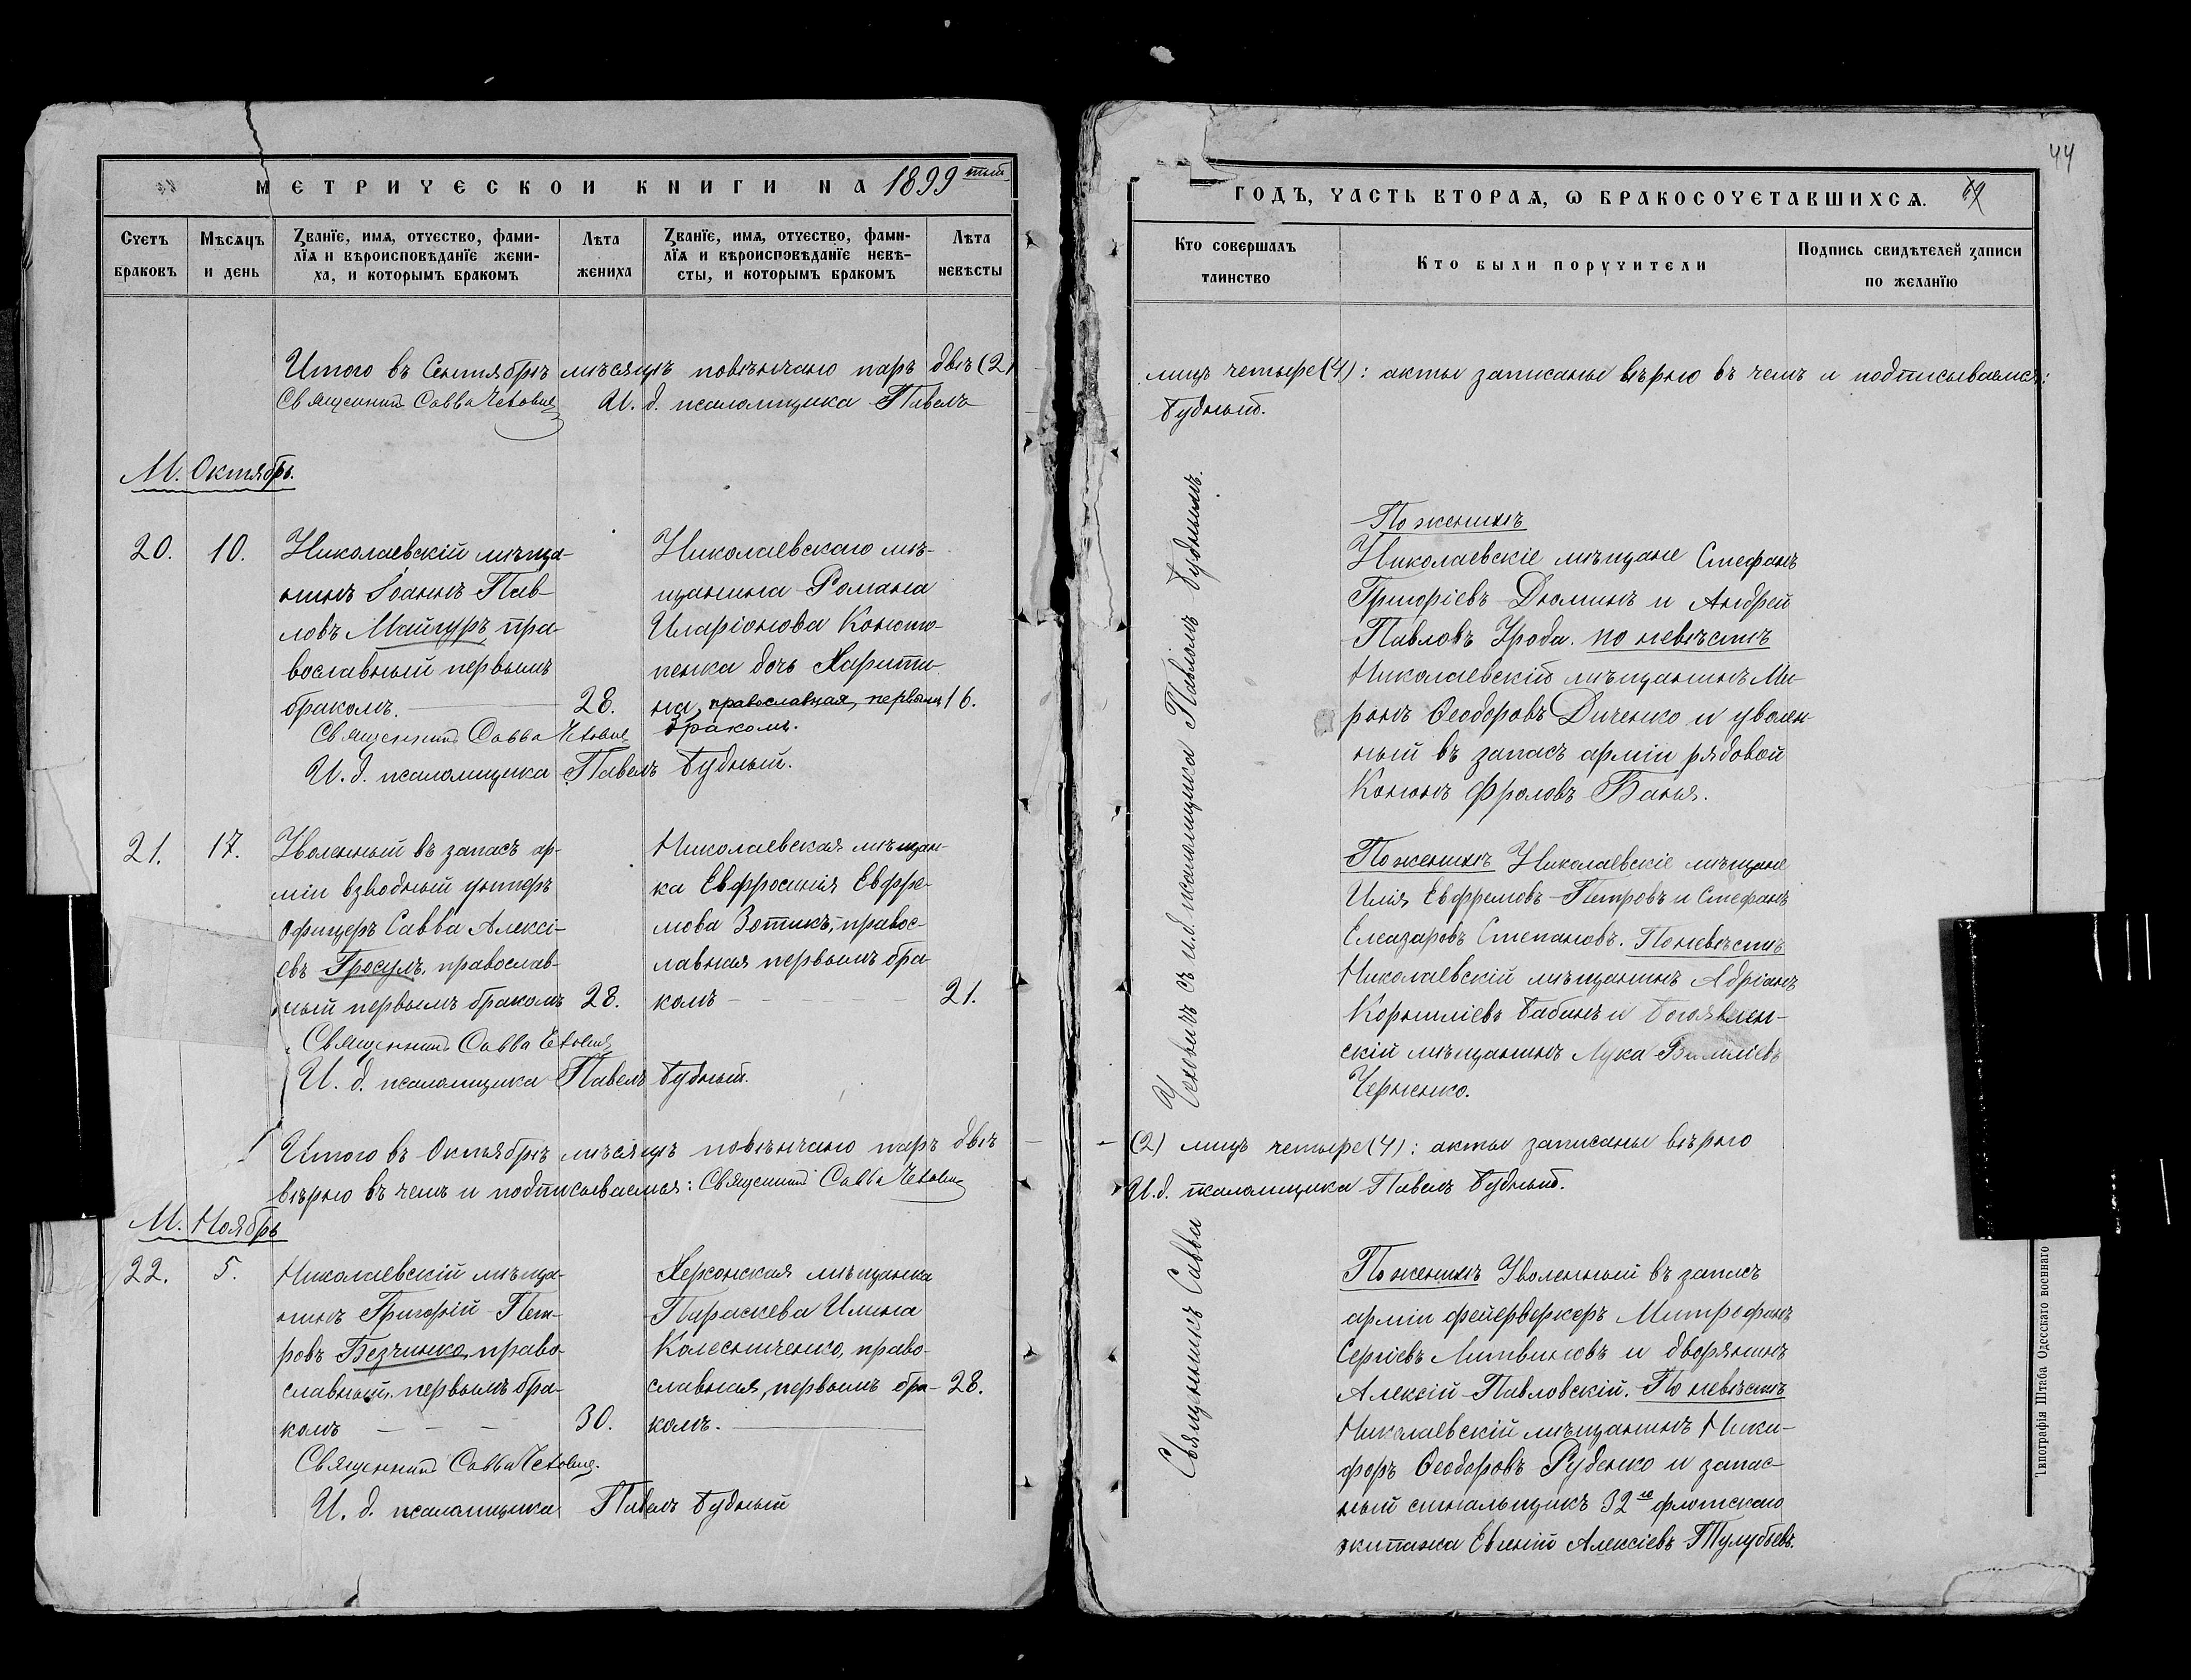 МЕТРИЧЕСКОЙ КНИГИ НА 1899 тый
Счетъ браковъ
Мѣсяцъ и день
Званїе, имя, отчество, фами-
лїя и вѣроисповѣданїе жени-
ха, и которымъ бракомъ
Лѣта жениха
Званїе, имя, отчество, фами-
лїя и вѣроисповѣданїе невѣ-
сты, и которымъ бракомъ
Лѣта невѣсты
Итого въ Сентябрѣ мѣсяцѣ повѣнчано паръ двѣ (2)
Священникъ Савва Чеховичъ И. д. псаломщика Павелъ
М. Октябрь.
20. 10.
Николаевскій мѣща-
нинъ Іоаннъ Пав-
ловъ Майгуръ пра-
вославный первымъ
бракомъ. 28.
Николаевскаго мѣ-
щанина Романа
Иларіонова Коното-
пенка дочь Харити-
на, православная, первымъ 16.
бракомъ.
Священникъ Савва Чеховичъ
И. д. псаломщика Павелъ Будный.
21. 17.
Уволенный въ запасъ ар-
міи взводный унтеръ
офицеръ Савва Алексі-
евъ Гросулъ, православ-
ный первымъ бракомъ 28.
Николаевская мѣщан-
ка Евфросинія Евфре-
мова Зотикъ, правос-
лавная первымъ бра-
комъ 21.
Священникъ Савва Чеховичъ
И. д. псаломщика Павелъ Будный.
Итого въ Октябрѣ мѣсяцѣ повѣнчано паръ двѣ
вѣрно въ чемъ и подписываемся: Священникъ Савва Чеховичъ
М. Ноябрь
22. 5.
Николаевскій мѣща-
нинъ Григорій Пет-
ровъ Безчинко, право-
славный, первымъ бра-
комъ 30.
Херсонская мѣщанка
Параскева Ильина
Колесниченко, право-
славная, первымъ бра- 28.
комъ.
Священникъ Савва Чеховичъ.
И. д. псаломщика Павелъ Будный
44
ГОДЪ, ЧАСТЬ ВТОРАЯ, Ѡ БРАКОСОЧЕТАВШИХСЯ.
Кто совершалъ таинство
Кто были поручители
Подпись свидѣтелей записи
по желанїю
лицъ четыре (4): акты записаны вѣрно въ чемъ и подписываемся:
Будный.
Священникъ Савва Чеховичъ съ и.д. псаломщика Павломъ Буднымъ.
По женихѣ
Николаевскіе мѣщане Стефанъ
Григоріевъ Дюминъ и Андрей
Павловъ Урода. по невѣстѣ
Николаевскій мѣщанинъ Ми-
ронъ Ѳеодоровъ Диченко и уволен-
ный въ запасъ арміи рядовой
Кононъ Фроловъ Банья.
По женихѣ Николаевскіе мѣщане
Илія Евфремовъ Петровъ и Стефанъ
Елеазаровъ Степановъ. По невѣстѣ
Николаевскій мѣщанинъ Адріанъ
Корниліевъ Бабинъ и Богоявлен-
скій мѣщанинъ Лука Василіевъ
Черненко.
(2) лицъ четыре (4): акты записаны вѣрно
И.д. псаломщика Павелъ Будный.
По женихѣ Уволенный въ запасъ
арміи фейерверкеръ Митрофанъ
Сергіевъ Литвиновъ и дворянинъ
Алексій Павловскій. По невѣстѣ
Николаевскій мѣщанинъ Ники-
форъ Ѳеодоровъ Руденко и запас-
ный сигнальщикъ 32го флотскаго
экипажа Евгеній Алексіевъ Тулубьевъ.
Типографія Штаба Одесскаго военнаго